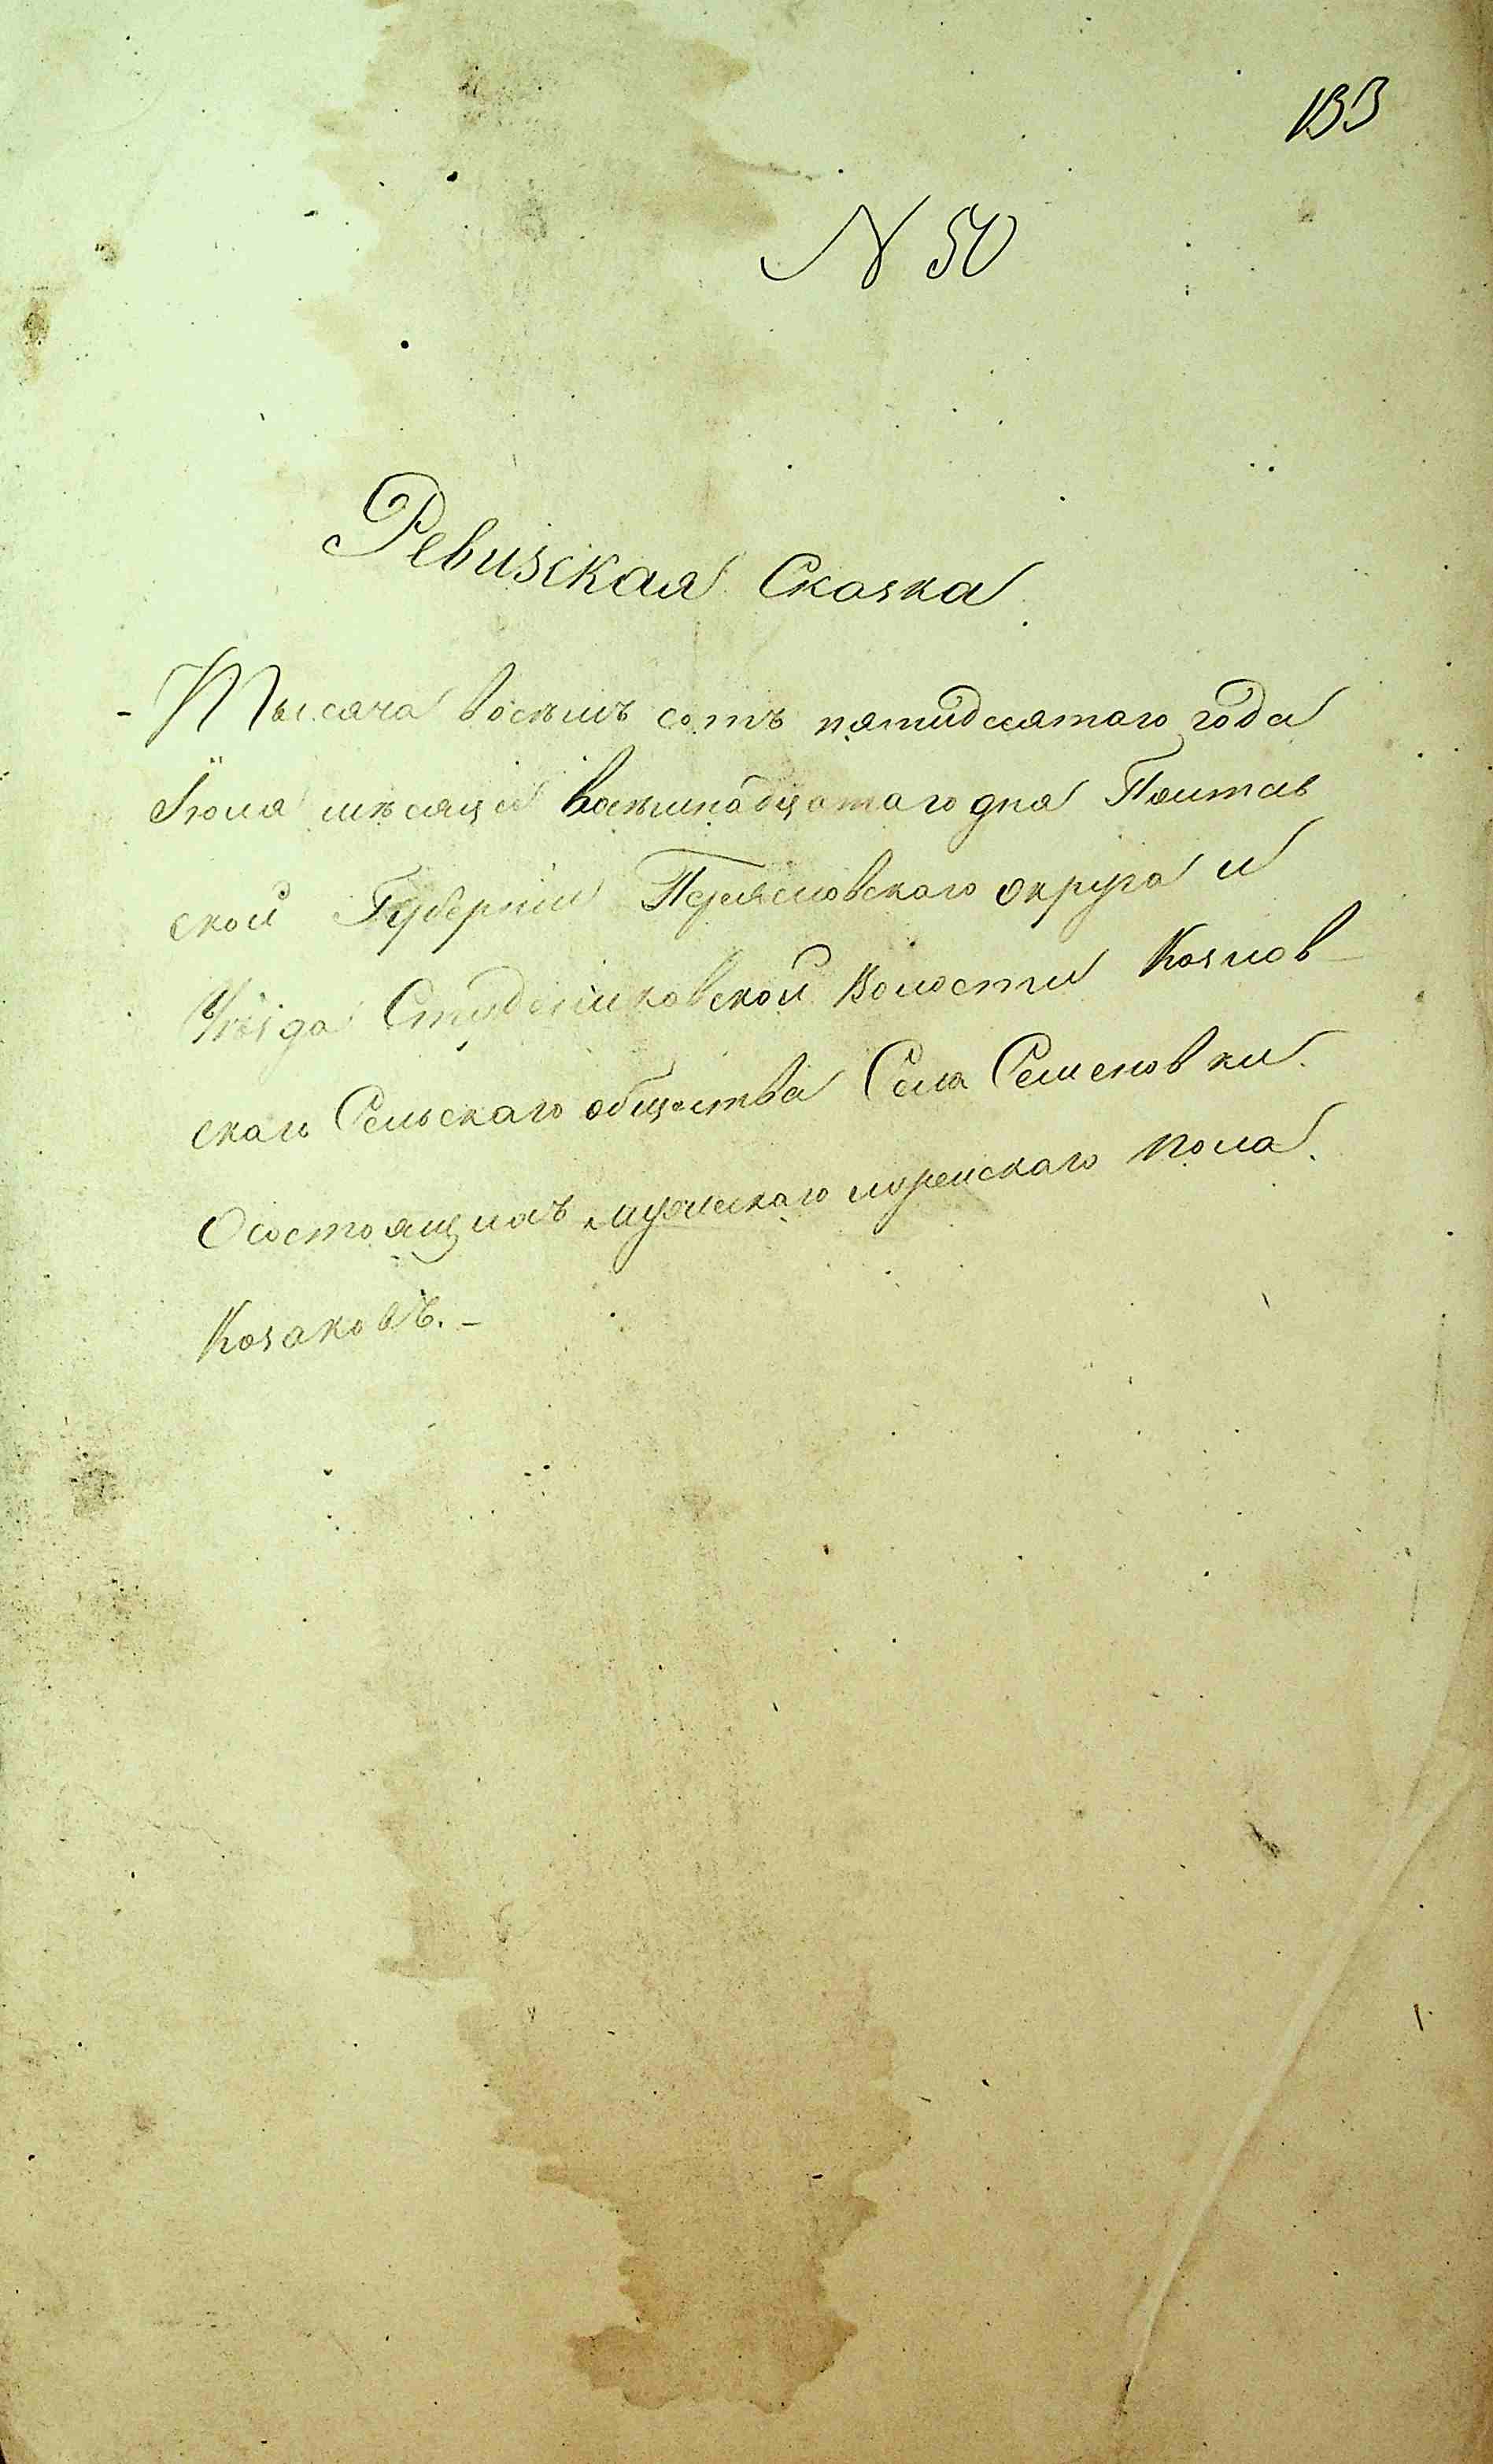 133
N 50
Ревизская Сказка
Тысяча восемь сотъ пятидесятаго года
Іюля мѣсяца восемнадцатаго дня Полтав
ской Губерніи Переясловскаго округа и
Уѣзда Студениковской Волости Козлов-
скаго Сельскаго общества Села Семеновки
Осостоящихъ мужескаго
пола
Козаковъ.-